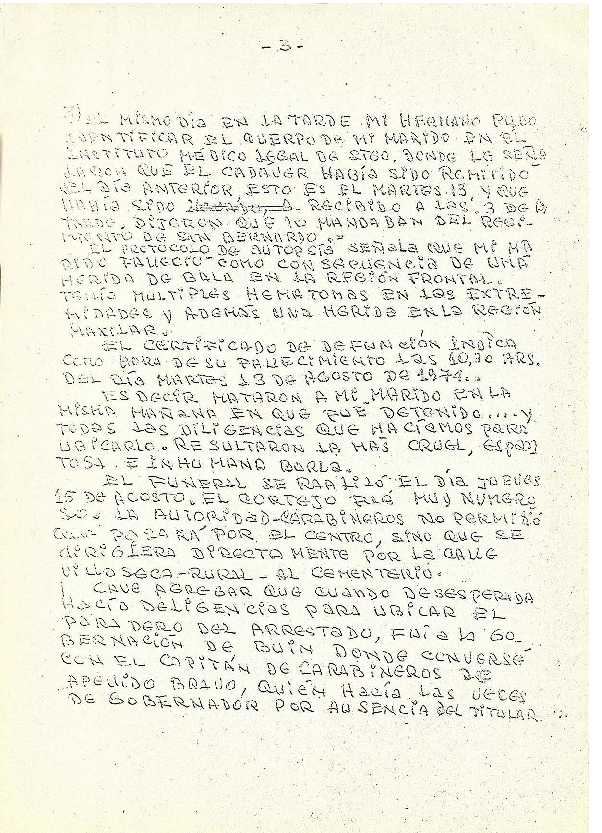 - 3 -
DEL MISMO DÍA EN LA TARDE MI HERMANO PUDO
IDENTIFICAR EL CUERPO DE MI MARIDO EN EL
INSTITUTO MÉDICO LEGAL DE STGO. DONDE LE SEÑA
LARON QUE EL CADAVER HABÍA SIDO REMITIDO
EL DÍA ANTERIOR, ESTO ES EL MARTES 13, Y QUE
HABÍA SIDO RECIBIDO A LAS 3 DE LA
TARDE. DIJERON QUE LO MANDABAN DEL REGI-
MIENTO DE SAN BERNARDO..-
EL PROTOCOLO DE AUTOPSIA SEÑALA QUE MI MA
RIDO FALLECIÓ COMO CONSEQUENCIA DE UNA
HERIDA DE BALA EN LA REGIÓN FRONTAL.
TENÍA MULTIPLES HEMATOMAS EN LAS EXTRE-
MIDADES Y ADEMAS UNA HERIDA EN LA REGION
MAXILAR.
EL CERTIFICADO DE DEFUNCIÓN INDICA
COMO HORA DE SU FALLECIMIENTO LAS 10,30 HRS.
DEL DÍA MARTES 13 DE AGOSTO DE 1974..
ES DECIR MATARON A MI MARIDO EN LA
MISMA MAÑANA EN QUE FUE DETENIDO.... Y
TODAS LAS DILIGENCIAS QUE HACÍAMOS PARA
UBICARLO. RESULTARON LA MAS CRUEL, ESPAN
TOSA E INHUMANA BURLA.
EL FUNERAL SE REALIZÓ EL DÍA JUEVES
15 DE AGOSTO. EL CORTEJO FUE MUY NUMERO
SO. LA AUTORIDAD-CARABINEROS NO PERMITIÓ
QUE PASARA POR EL CENTRO, SINO QUE SE
DIRIGIERA DIRECTAMENTE POR LA CALLE
VILLASECA-RURAL- AL CEMENTERIO.
CAVE AGREGAR QUE CUANDO DESESPERADA
HACÍA DELIGENCIAS PARA UBICAR EL
PARADERO DEL ARRESTADO, FUÍ A LA GO_
BERNACIÓN DE BUIN DONDE CONVERSÉ
CON EL CAPITÁN DE CARABINEROS DE
APELLIDO BRAVO, QUIÉN HACÍA LAS VECES
DE GOBERNADOR POR AUSENCIA DEL TITULAR